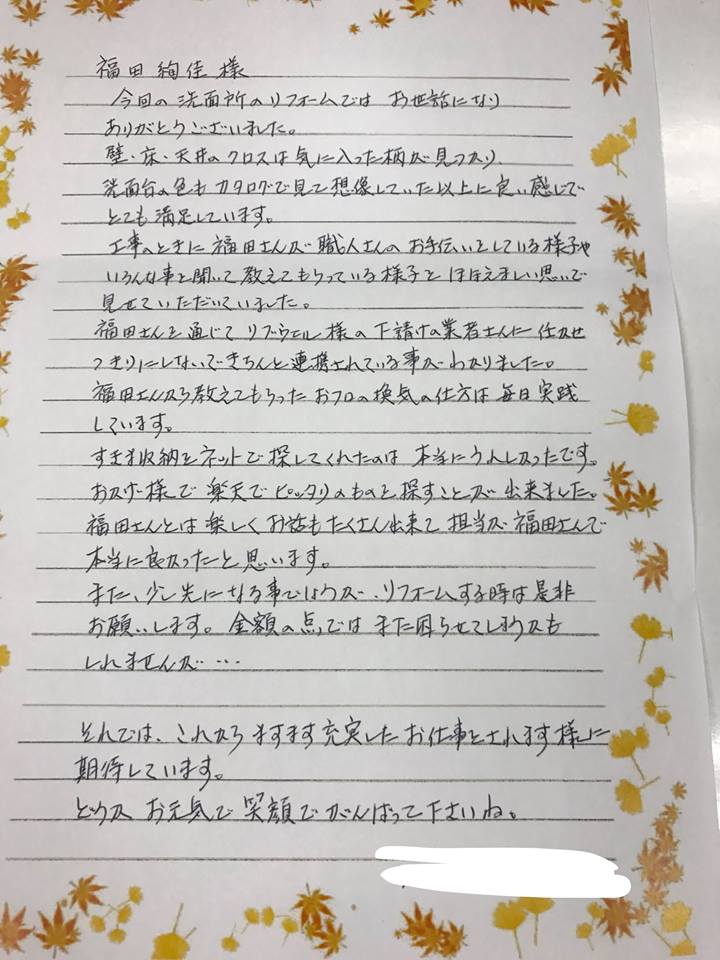 福田絢佳様
今回の洗面所のリフォームでは お世話になり
ありがとうございました。
壁・床・天井のクロスは気に入った柄が見つかり、
洗面台の色もカタログで見て想像していた以上に良い感じで
とても満足しています。
工事のときに福田さんが職人さんのお手伝いをしている様子や
いろんな事を聞いて教えてもらっている様子をほほえましい思いで
見せていただいていました。
福田さんを通じてリブウェル様の下請けの業者さんに任せ
っきりにしないできちんと連携されている事がわかりました。
福田さんから教えてもらったおフロの換気の仕方は毎日実践
しています。
すきま収納をネットで探してくれたのは本当にうれしかったです。
おかげ様で楽天でピッタリのものを探すことが出来ました。
福田さんとは楽しくお話もたくさん出来て担当が福田さんで
本当に良かったと思います。
また、少し先になる事でしょうが、リフォームする時は是非
お願いします。金額の点では また困らせてしまうかも
しれませんが…
それでは、これからますます充実したお仕事をされます様に
期待しています。
どうか お元気で笑顔でがんばって下さいね。